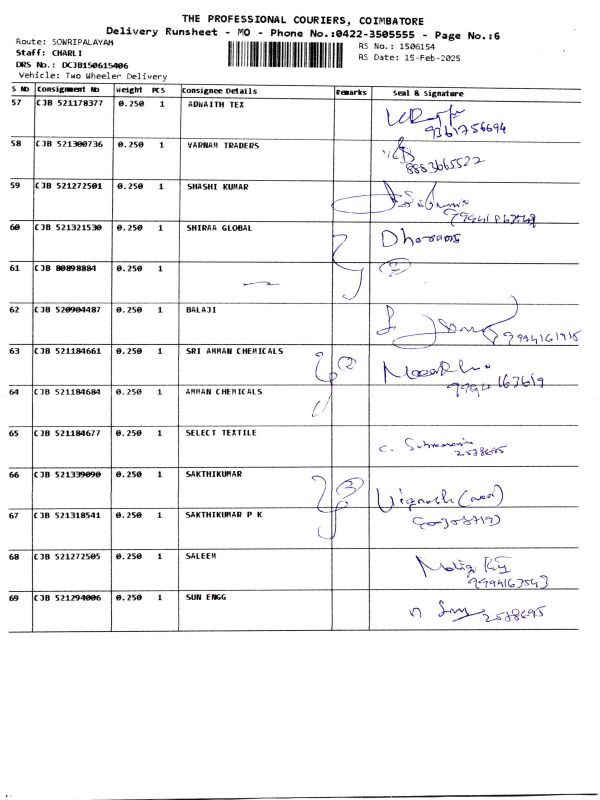 THE PROFESSIONAL COURIERS, COIMBATORE
Delivery Runsheet - MO - Phone No.:0422-3505555 - Page No.:6
Route: SOWRIPALAYAM
RS No.: 1506154
Staff: CHARLI
RS Date: 15-Feb-2025
DRS No.: DCJB150615406
Vehicle: Two Wheeler Delivery
S No Consignment No Weight PCS Consignee Details Remarks Seal & Signature
57 CJB 521178377 0.250 1 ADWAITH TEX
9361756694
58 CJB 521300736 0.250 1 VARNAM TRADERS
8883665522
59 CJB 521272501 0.250 1 SHASHI KUMAR
60 CJB 521321530 0.250 1 SHIRAA GLOBAL
61 CJB 80898884 0.250 1 2
62 CJB 520904487 0.250 1 BALAJI
9994161915
63 CJB 521184661 0.250 1 SRI AMMAN CHEMICALS 2
9994163619
64 CJB 521184684 0.250 1 AMMAN CHEMICALS
65 CJB 521184677 0.250 1 SELECT TEXTILE
2578695
66 CJB 521339090 0.250 1 SAKTHIKUMAR
67 CJB 521318541 0.250 1 SAKTHIKUMAR P K
68 CJB 521272505 0.250 1 SALEEM
9994163543
69 CJB 521294006 0.250 1 SUN ENGG
2578695